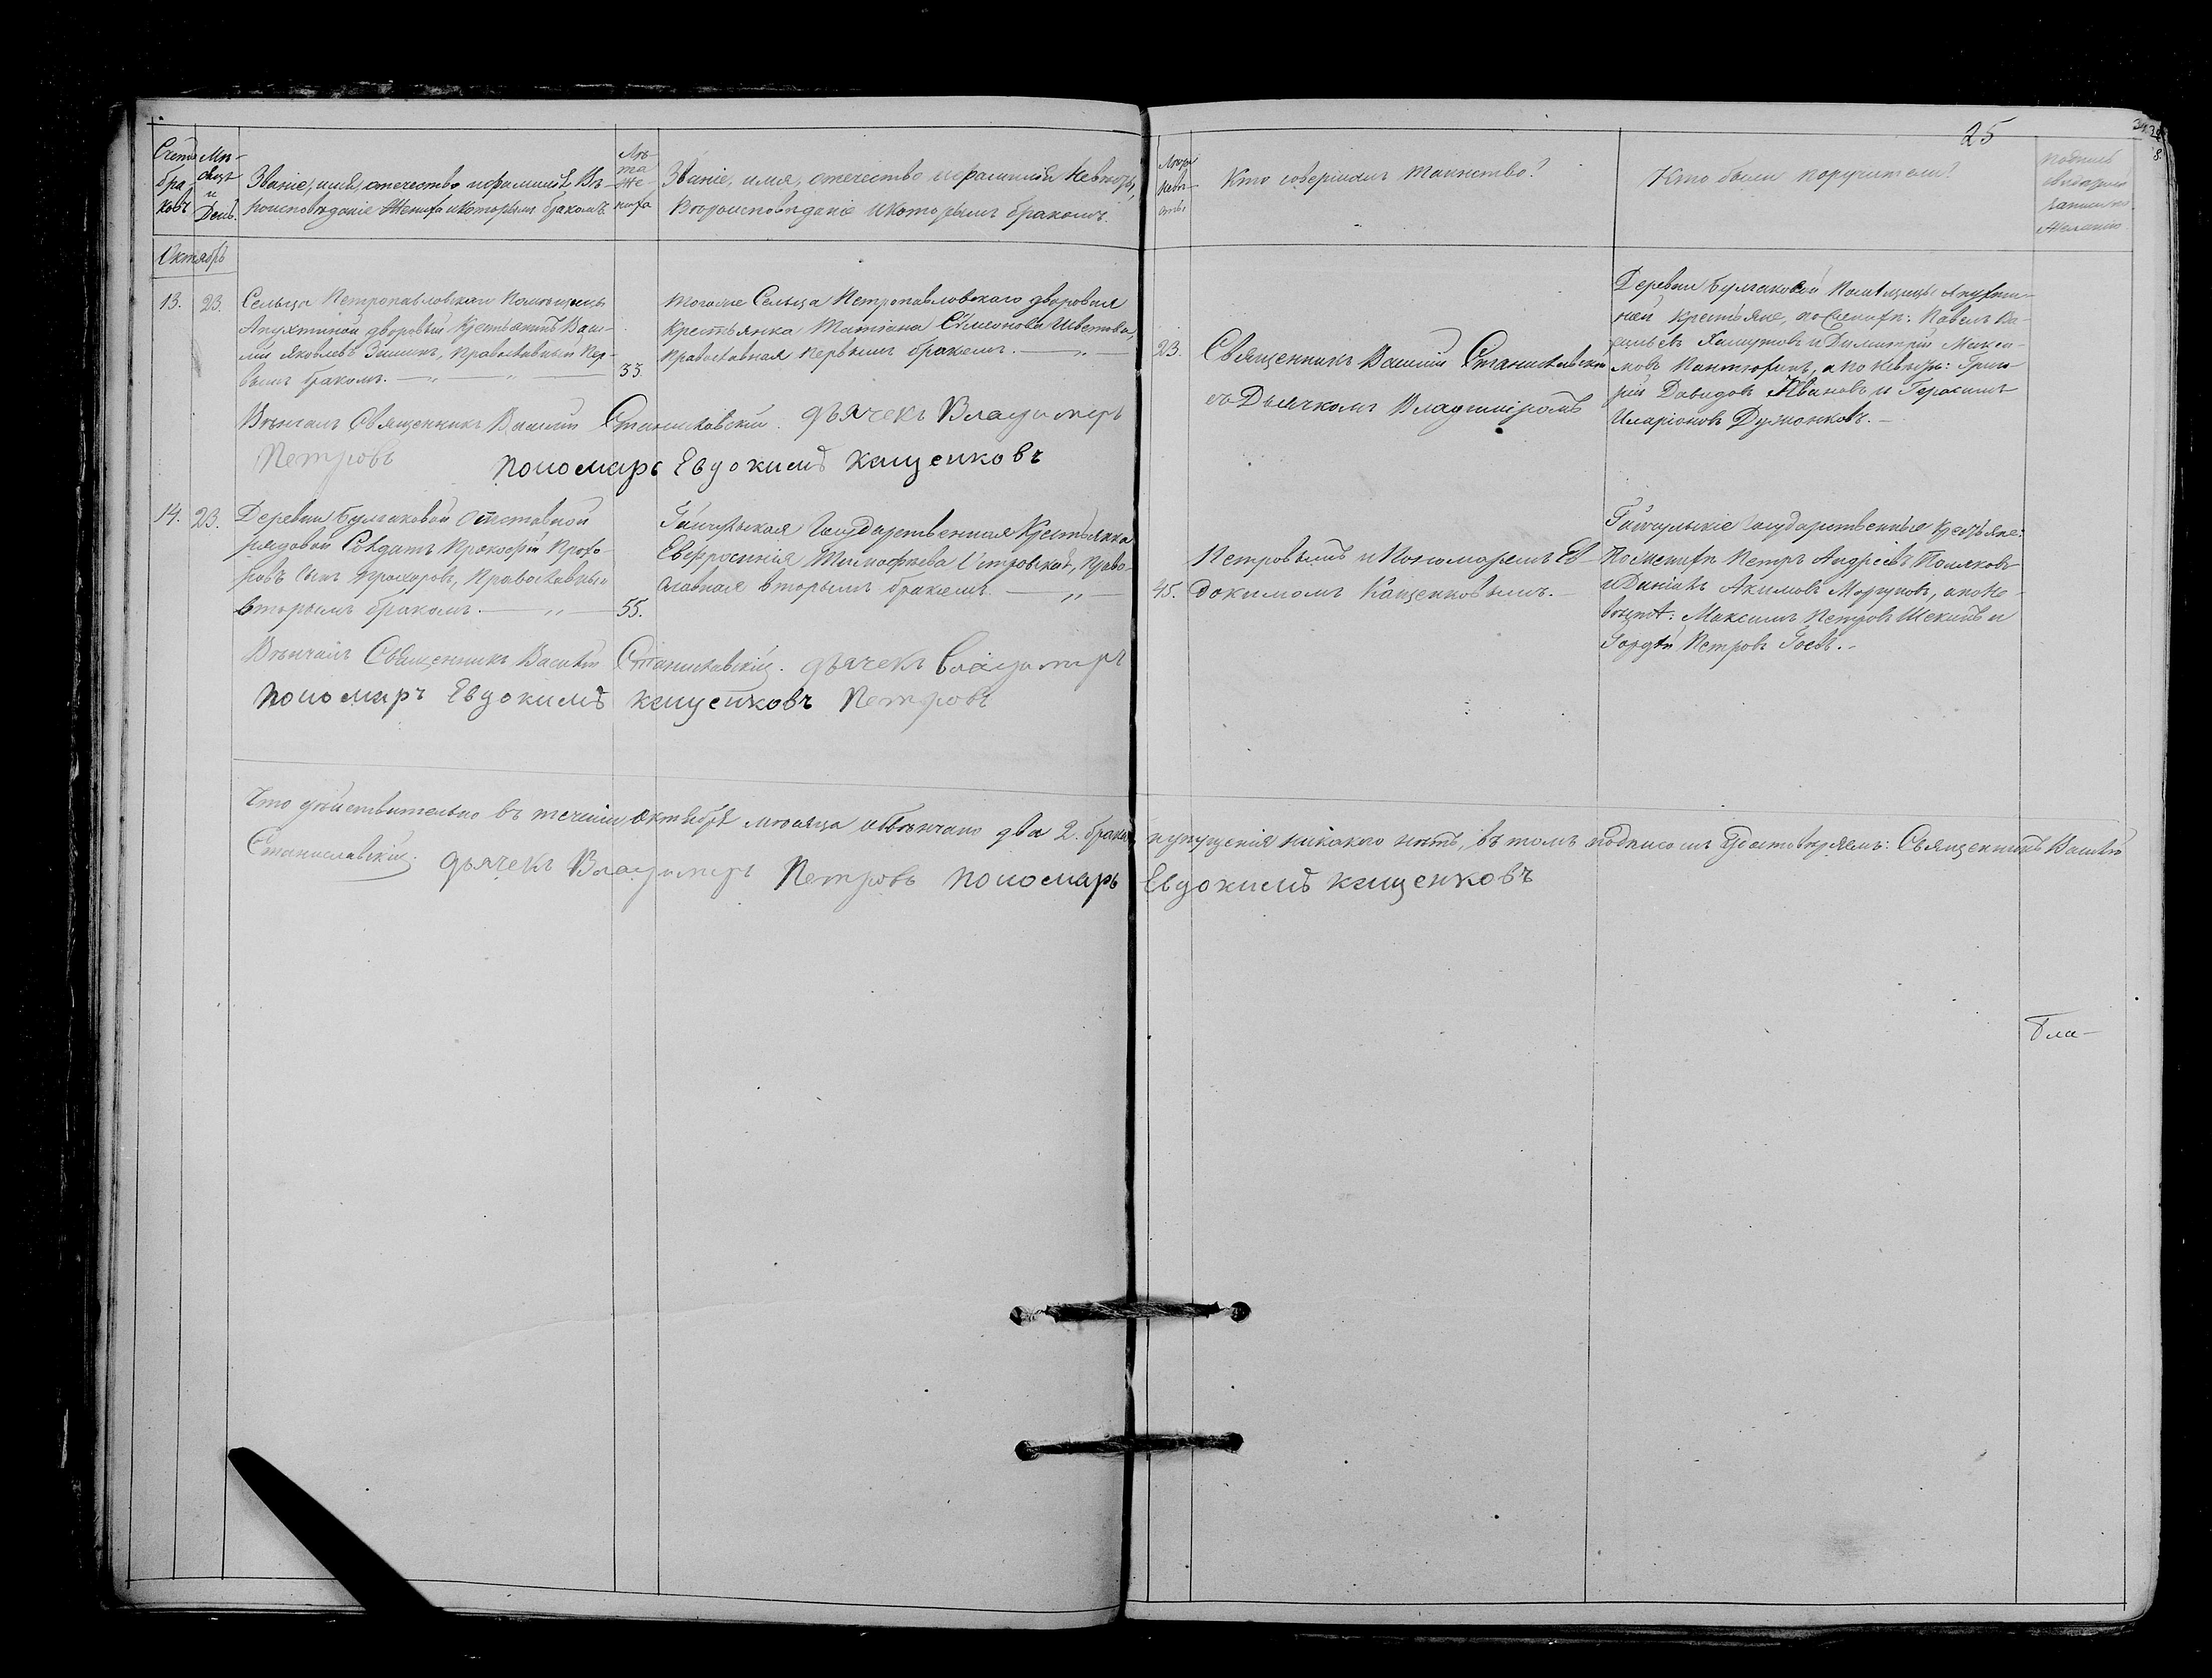 25
Счетъ бра-ковъ
Мѣ-сяцъ и День.
Званіе, имя, отечество и фамилія, Вѣ-
роисповѣданіе Жениха и которымъ бракомъ.
Лѣ-та Же-ниха
Званіе, имя, отечество и фамилія Невѣсты,
Вѣроисповѣданіе и которымъ бракомъ.
Лѣта Невѣ-сты
Кто совершалъ таинство?
Кто были поручители?
Подпись свидѣтелей записи по желанію
Октябрь
13.
23.
Сельца Петропавловскаго Помѣщицы
Апухтиной дворовый крестьянинъ Васи-
лій Яковлевъ Зиминъ, православный пер-
вымъ бракомъ.
33.
Тогоже Сельца Петропавловскаго дворовая
крестьянка Татіана Симеонова
православная первымъ бракомъ.
23.
Священникъ Василій Станиславскій
съ Дьячкомъ Владиміромъ
Деревни Булгаковой Помѣщицы Апухти-
ной крестьяне, по Женихѣ: Павелъ Ва-
сильевъ и Димитрій Макси-
мовъ Пантюфинъ, а по Невѣстѣ: Григо-
рій Давидовъ Ивановъ и Герасимъ
Иларіоновъ
Вѣнчалъ Священникъ Василій Станиславскій. Дьячекъ Владимеръ
Петровъ Пономарь Евдокимъ Кащенковъ
14.
23.
Деревни Булгаковой отставной
рядовой Солдатъ Прокофій Прохо-
ровъ сынъ Прохоровъ, Православный
вторымъ бракомъ.
55.
Государственная Крестьянка
Евфросинія Тимофѣева Петровская, Право-
славная вторымъ бракомъ.
45.
Петровымъ и Пономаремъ Ев-
докимомъ Кащенковымъ.
Государственные Крестьяне:
По Женихѣ Петръ Андреевъ Поляковъ
и Даніилъ Акимовъ Моргуновъ, а по Не-
вѣстѣ: Максимъ Петровъ Шекинъ и
Гордѣй Петровъ Гоевъ.
Вѣнчалъ Священникъ Василій Станиславскій. Дьячекъ Владимеръ
Пономарь Евдокимъ Кащенковъ Петровъ
Что дѣйствительно въ теченіи Октября мѣсяца обвѣнчано два 2. брака, пупущенія никакого нѣтъ, въ томъ подписомъ удостовѣряемъ: Священникъ Василій
Станиславскій. Дьячекъ Владимеръ Петровъ Пономарь Евдокимъ Кащенковъ
Бла-